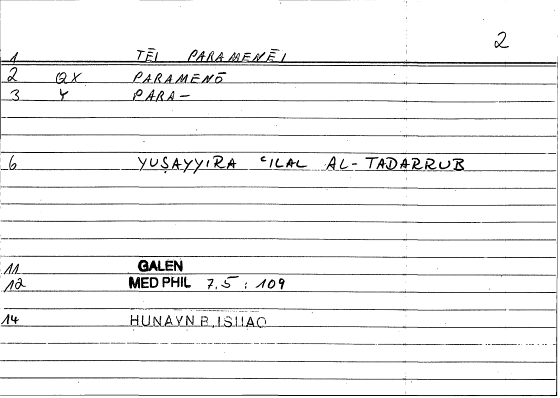 2
1 TĒI PARAMENĒI
2 QX PARAMENŌ
3 Y PARA-
6 YUṢAYYIRA ʿILAL AL-TADARRUB
11 GALEN
12 MED PHIL 7.5 : 109
14 HUNAYN B. ISHAQ